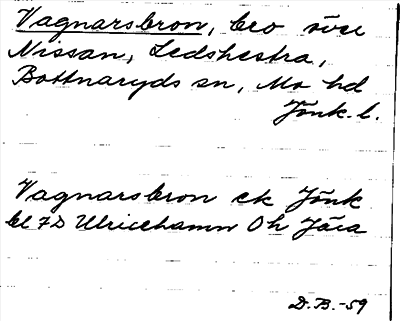 Vagnarsbron, bro över
Nissan, Ledshestra,
Bottnaryds sn, Mo hd
Jönk. l.
Vagnarsbron ek Jönk
bl 7D Ulricehamn Oh Jära
D.B.-59